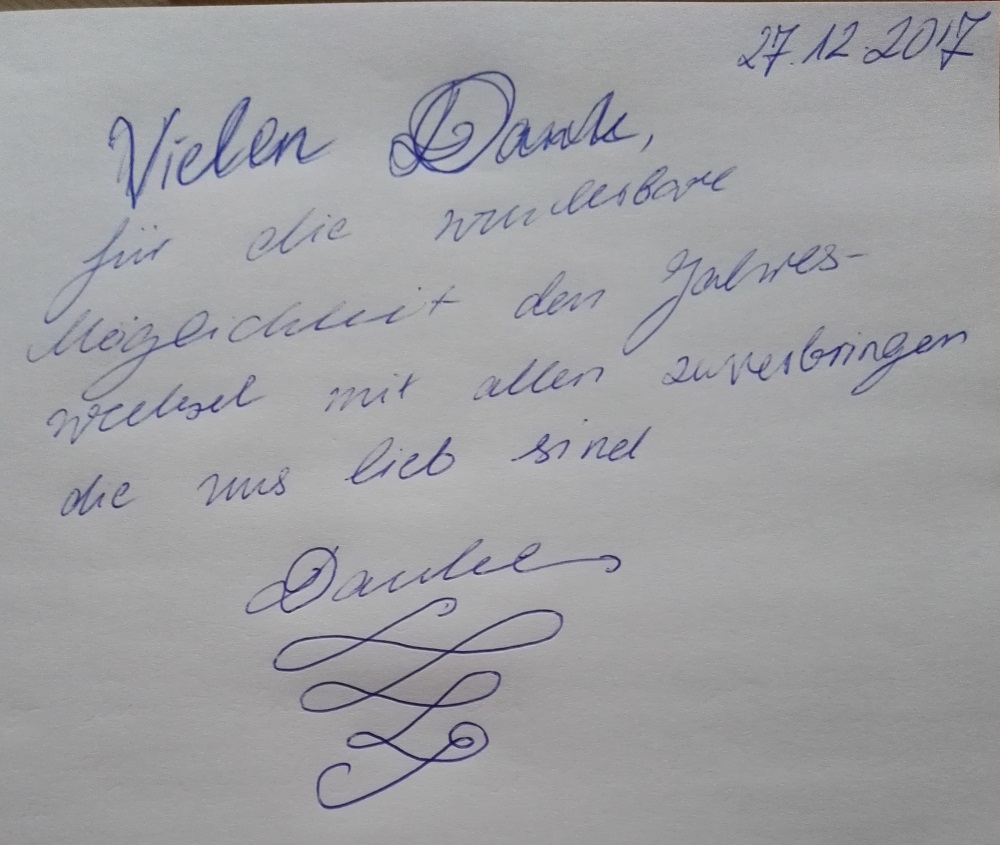 27.12.2017
Vielen Dank,
für die wunderbare
Möglichkeit den Jahres-
wechsel mit allen zuverbringen
die uns lieb sind
Danke